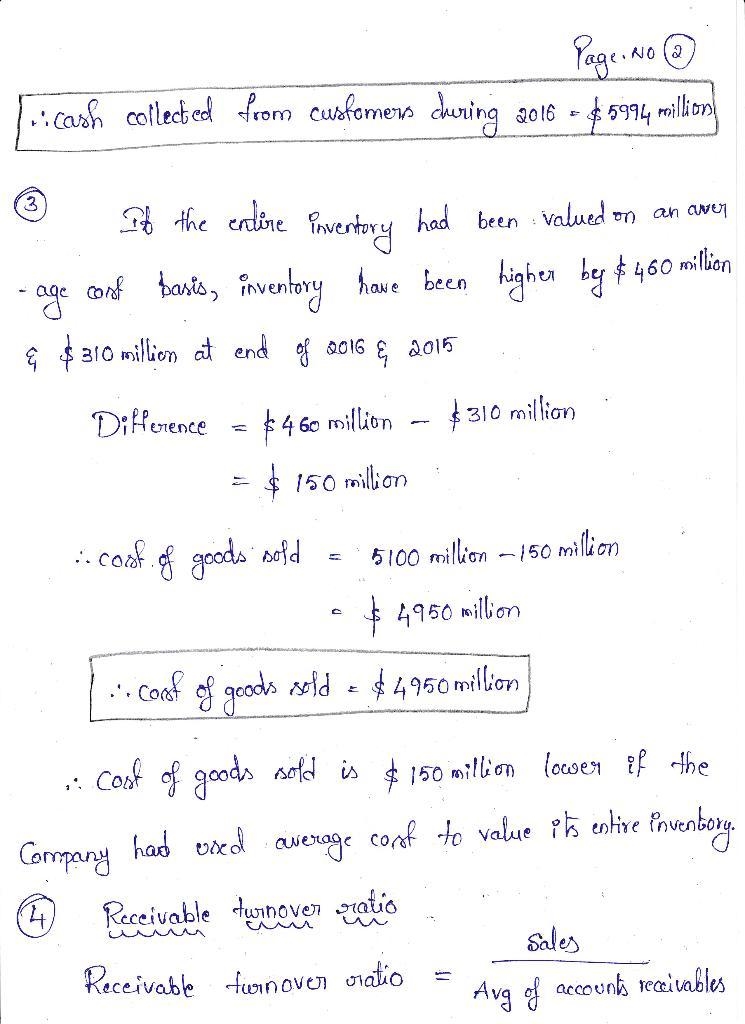 Page. No ②
∴ cash collected from customers during 2016 = $5994 million
③ If the entire inventory had been valued on an aver
- age cost basis, inventory have been higher by $460 million
& $310 million at end of 2016 & 2015
Difference = $460 million – $310 million
= $ 150 million
∴ cost of goods sold = 5100 million – 150 million
= $ 4950 million
∴ cost of goods sold = $4950 million
∴ Cost of goods sold is $150 million lower if the
Company had used average cost to value its entire inventory.
④ Receivable turnover ratio
Receivable turnover ratio = Sales
Avg of accounts receivables